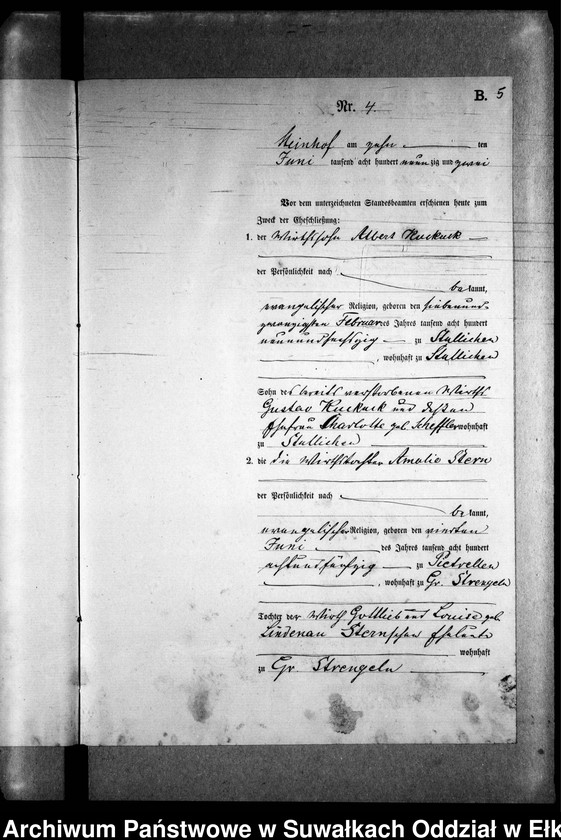 B. 5
Nr. 4.
Steinhof am zehn ten
Juni tausend acht hundert neunzig und zwei
Vor dem unterzeichneten Standesbeamten erschienen heute zum
Zweck der Eheschließung:
1. der Wirthssohn Albert Kuckuck
der Persönlichkeit nach
bekannt,
evangelischer Religion, geboren den siebenund-
zwanzigsten Februar des Jahres tausend acht hundert
neunundsechszig zu Stullichen
, wohnhaft zu Stullichen
Sohn des bereits verstorbenen Wirths
Gustav Kuckuck und dessen
Ehefrau Charlotte geb. Scheffler wohnhaft
zu Stullichen
2. die die Wirthstochter Amalie Stern
der Persönlichkeit nach
bekannt,
evangelischer Religion, geboren den vierten
Juni des Jahres tausend acht hundert
zu Pietrellen
, wohnhaft zu Gr. Strengeln
Tochter der Wirth Gottlieb und Louise geb.
Lindenau Sternschen Eheleute
wohnhaft
zu Gr Strengeln
Archiwum Państwowe w Suwałkach Oddział w Ełk